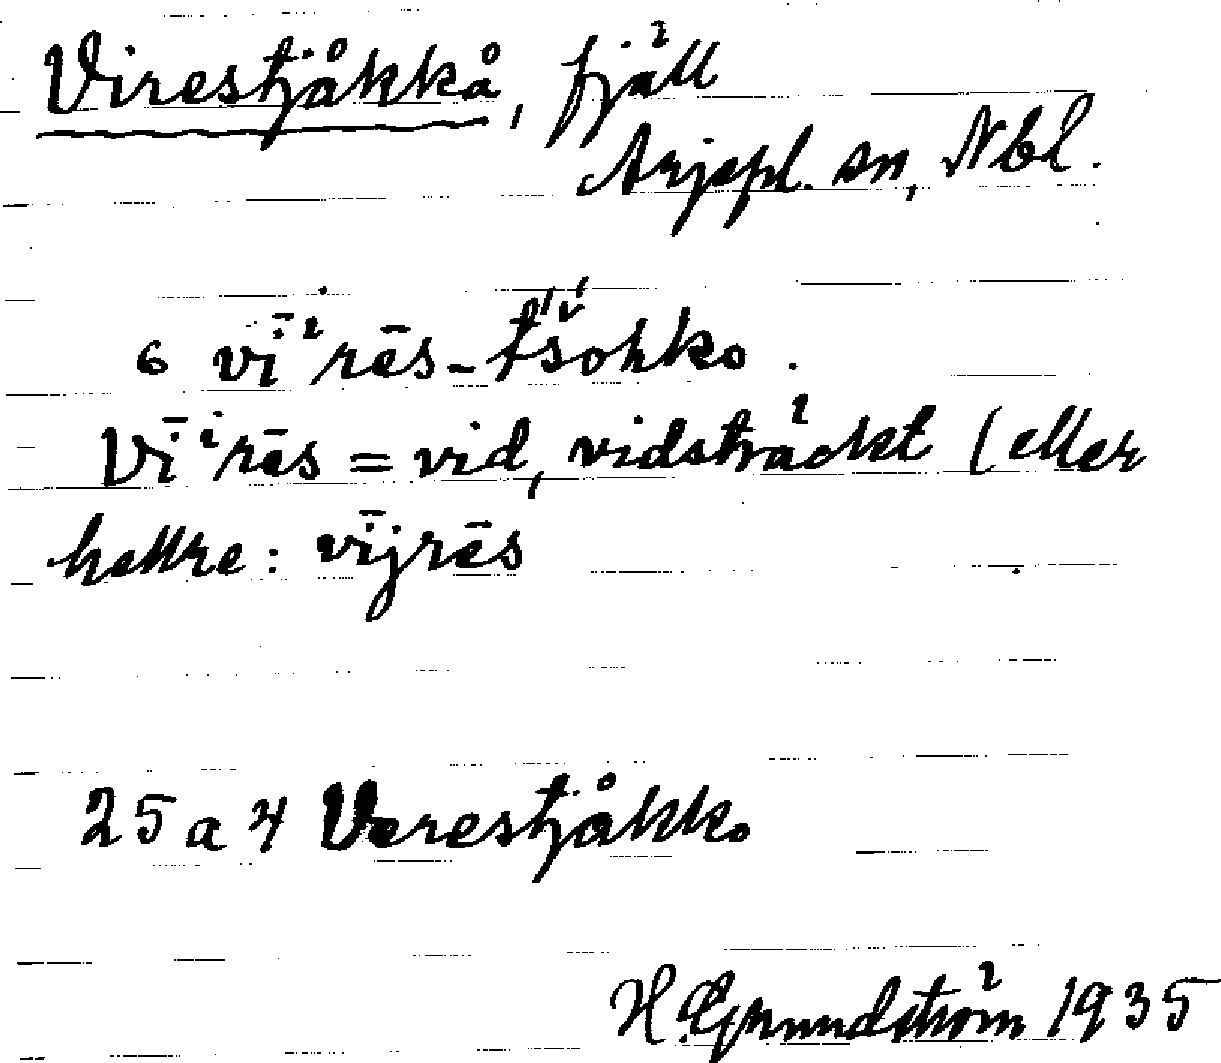 Virestjåkkå, fjäll
Arjepl. sn, Nbl.
6 vī̇ʾrēs-t́šohko.
Vī̇ʾrēs = vid, vidsträckt (eller
hellre: vījrēs
25 a 4 Verestjåkko
H. Grundström 1935